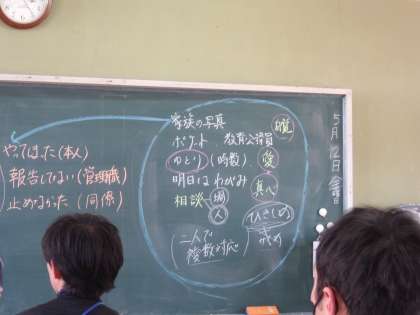 家族の写真
ポケット 教育公務員 自覚
ゆとり(時数) 愛
明日はわがみ 真心
相談 網 人
ひさしの 戒め
(二人で複数対応)
やってはった(本人)
報告してない(管理職)
止めなかった(同僚)
5月12日金曜日